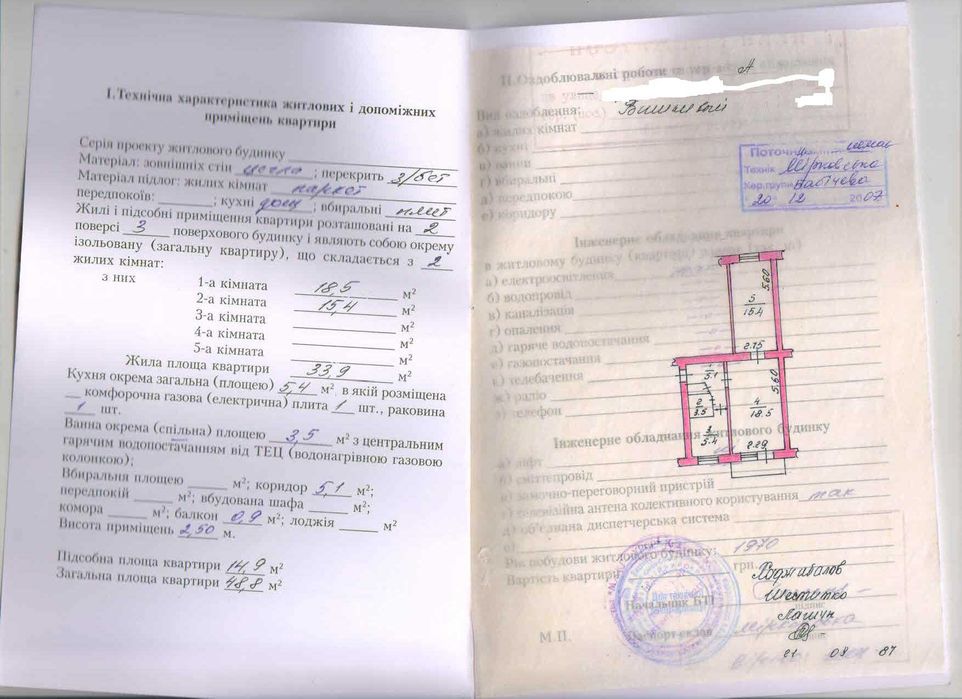 І. Технічна характеристика житлових і допоміжних
приміщень квартири
Серія проекту житлового будинку
Матеріал: зовнішніх стін цегла; перекрить з/бет
Матеріал підлог: жилих кімнат паркет
передпокоїв: ; кухні дощ; вбиральні плит
Жилі і підсобні приміщення квартири розташовані на 2
поверсі 3 поверхового будинку і являють собою окрему
ізольовану (загальну квартиру), що складається з 2
жилих кімнат:
з них 1-а кімната 18,5 м²
2-а кімната 15,4 м²
3-а кімната м²
4-а кімната м²
5-а кімната м²
Жила площа квартири 33,9 м²
Кухня окрема загальна (площею) 5,4 м² в якій розміщена
комфорочна газова (електрична) плита 1 шт., раковина
1 шт.
Ванна окрема (спільна) площею 3,5 м² з центральним
гарячим водопостачанням від ТЕЦ (водонагрівною газовою
колонкою);
Вбиральня площею м²; коридор 5,1 м²;
передпокій м²; вбудована шафа м²;
комора м²; балкон 0,9 м²; лоджія м²
Висота приміщень 2,50 м.
Підсобна площа квартири 14,9 м²
Загальна площа квартири 48,8 м²
ІІ. Оздоблювальні роботи
Вид оздоблення:
а) жилих кімнат
б) кухні
в) ванни
г) вбиральні
д) передпокою
е) коридору
Поточні
Технік
Кер. групи
20 12 2007
Інженерне обладнання квартири
в житловому будинку (квартирі)
а) електроосвітлення
б) водопровід
в) каналізація
г) опалення
д) гаряче водопостачання
е) газопостачання
є) телебачення
ж) радіо
з) телефон
5
15.4
5.60
2.75
1
5.1
2
3.5
3
5.4
4
18.5
5.60
2.29
Інженерне обладнання житлового будинку
а) ліфт
б) сміттєпровід
в) замочно-переговорний пристрій
г) телевізійна антена колективного користування так
д) об'єднана диспетчерська система
е)
Рік побудови житлового будинку: 1970
Вартість квартири грн.
Начальник БТІ
підпис
М.П.
Паспорт склав
21 08 87